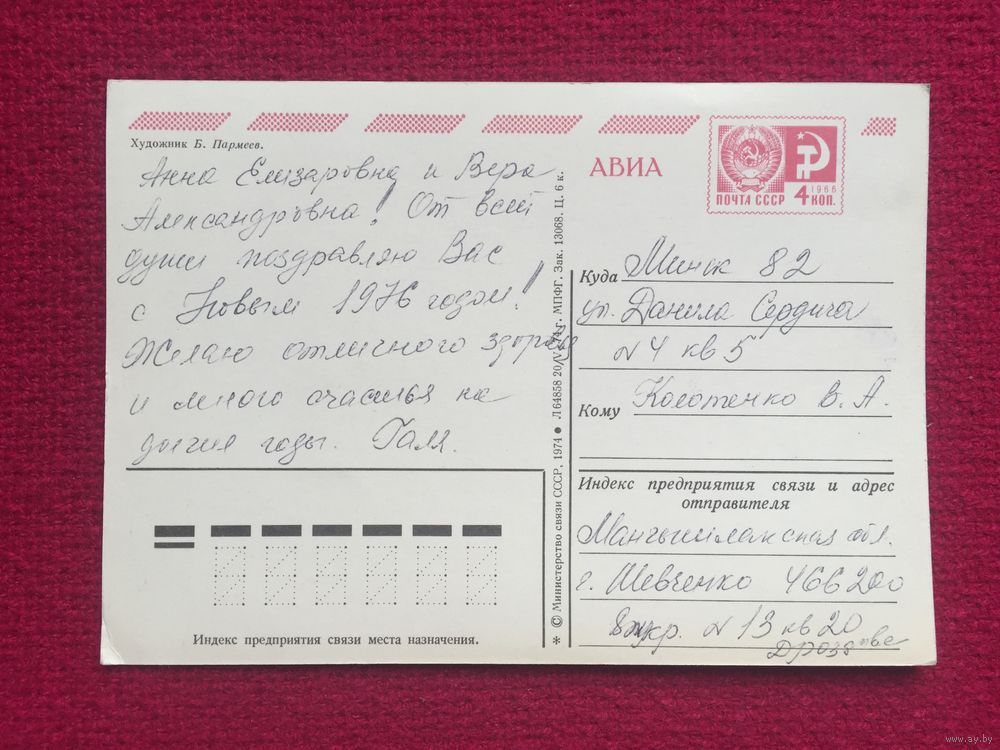 Художник Б. Пармеев.
Анна Елизаровна и Вера
Александровна! От всей
души поздравляю Вас
с Новым 1976 годом!
Желаю отличного здоровья
и много счастья на
долгие годы. Галя.
Индекс предприятия связи места назначения.
✶ © Министерство связи СССР, 1974 ● Л 64858 20/V-74 г. МПФГ. Зак. 13068. Ц. 6 к.
АВИА
ПОЧТА СССР
1966
4 КОП.
Куда Минск 82
ул. Данила Сердича
N 4 кв 5
Кому Колотенко В. А.
Индекс предприятия связи и адрес
отправителя
Мангышлакская обл.
г. Шевченко 466200
8 мкр. N 13 кв 20
www.ay.by